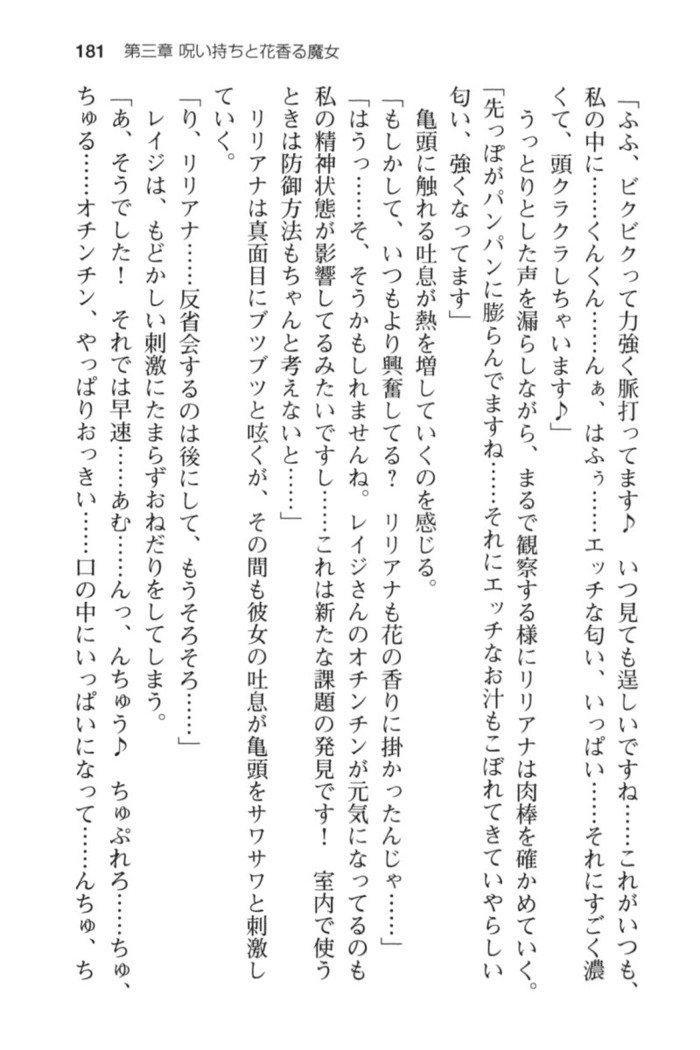 181 第三章 呪い持ちと花香る魔女
「ふふ、ビクビクって力強く脈打ってます♪　いつ見ても逞しいですね……これがいつも、
私の中に……くんくん……んぁ、はふぅ……エッチな匂い、いっぱい……それにすごく濃
くて、頭クラクラしちゃいます♪」
　うっとりとした声を漏らしながら、まるで観察する様にリリアナは肉棒を確かめていく。
「先っぽがパンパンに膨らんでますね……それにエッチなお汁もこぼれてきていやらしい
匂い、強くなってます」
　亀頭に触れる吐息が熱を増していくのを感じる。
「もしかして、いつもより興奮してる？　リリアナも花の香りに掛かったんじゃ……」
「はうっ……そ、そうかもしれませんね。レイジさんのオチンチンが元気になってるのも
私の精神状態が影響してるみたいですし……これは新たな課題の発見です！　室内で使う
ときは防御方法もちゃんと考えないと……」
　リリアナは真面目にブツブツと呟くが、その間も彼女の吐息が亀頭をサワサワと刺激し
ていく。
「り、リリアナ……反省会するのは後にして、もうそろそろ……」
　レイジは、もどかしい刺激にたまらずおねだりをしてしまう。
「あ、そうでした！　それでは早速……あむ……んっ、んちゅう♪　ちゅぷれろ……ちゅ、
ちゅる……オチンチン、やっぱりおっきい……口の中にいっぱいになって……んちゅ、ち